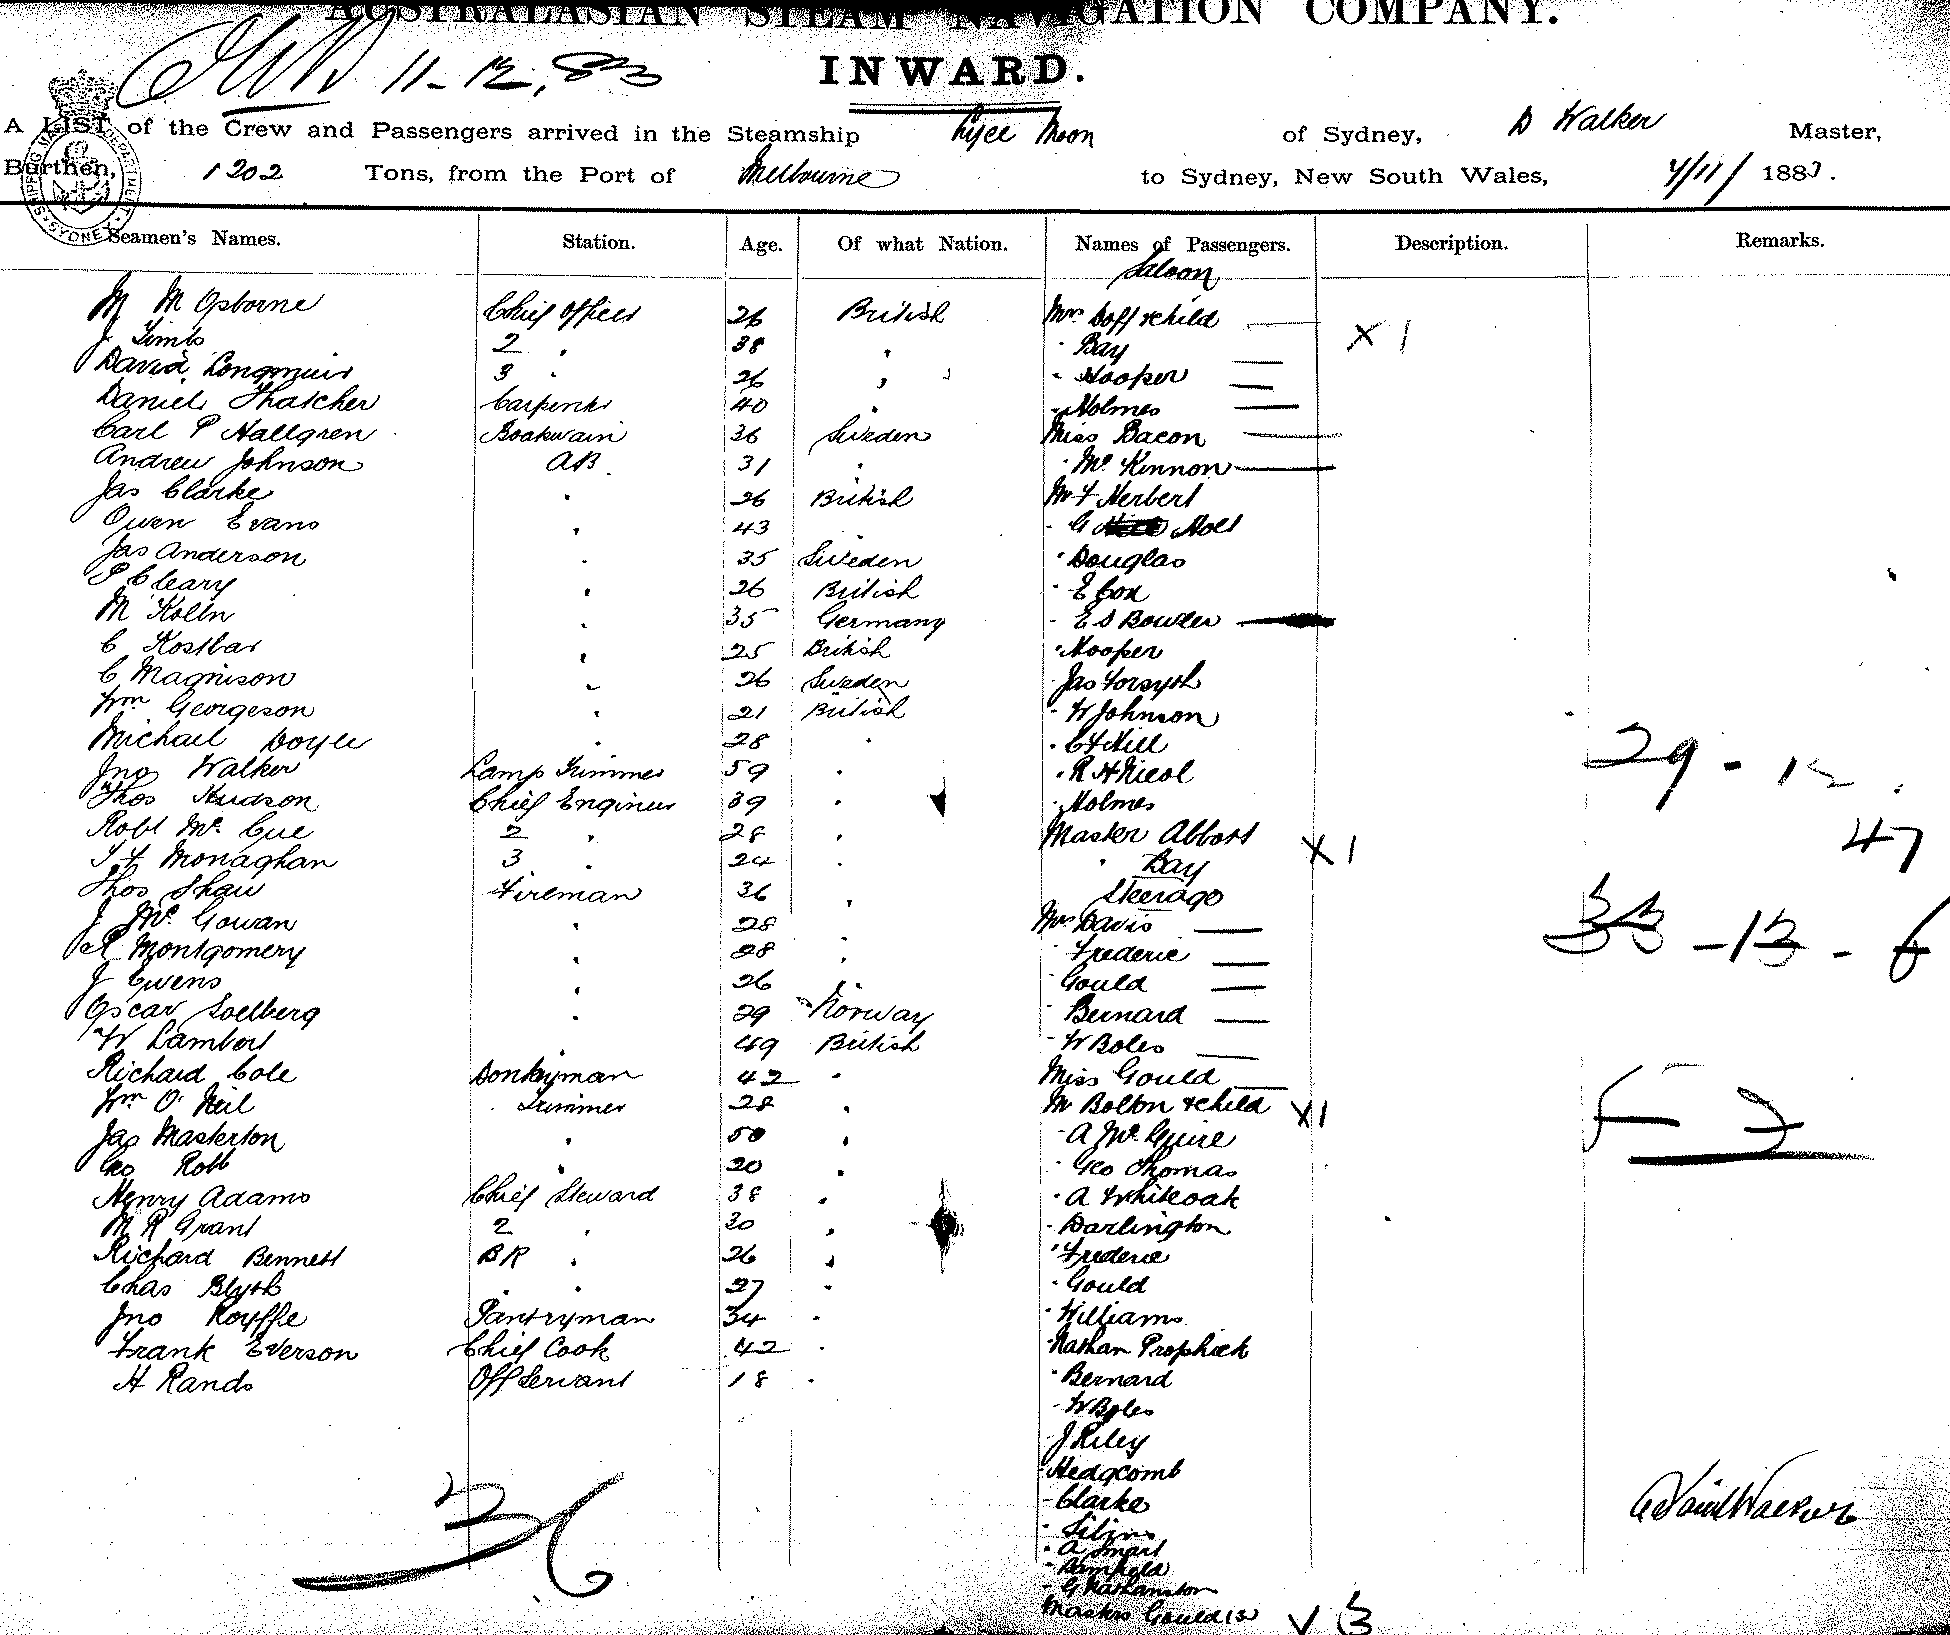 AUSTRALASIAN STEAM NAVIGATION COMPANY.
11-12.83
INWARD.
A LIST of the Crew and Passengers arrived in the Steamship Lyee Moon of Sydney, D Walker Master,
Burthen, 1202 Tons, from the Port of Melbourne to Sydney, New South Wales, 4/11/ 1883.
Seamen's Names. Station. Age. Of what Nation. Names of Passengers. Description. Remarks.
Saloon
M M Osborne Chief Officer 26 British Mrs Goff & child — X 1
J Timbs 2 " 38 " " Bay —
David Longmuir 3 " 26 " " Hooper —
Daniel Thatcher Carpenter 40 " " Holmes —
Carl P Hallgren Boatswain 36 Sweden Miss Bacon —
Andrew Johnson AB 31 " " Mc Kinnon —
Jas Clarke " 26 British Mr F Herbert
Owen Evans " 43 " " G Holt
Jas Anderson " 35 Sweden " Douglas
P Cleary " 26 British " E Cox
M Kolln " 35 Germany " E S Bowler —
C Kostbar " 25 British " Hooper
C Magnison " 26 Sweden " Jas Forsyth
Wm Georgeson " 21 British " W Johnson
Michael Doyle " 28 " " C F Hill
Jno Walker Lamp Trimmer 59 " " R H Nicol 29 - 12
Thos Hudson Chief Engineer 39 " " Holmes
Robt Mc Cue 2 " 28 " Master Abbott X 1 47
T F Monaghan 3 " 24 " " Bay
Thos Shaw Fireman 36 " Steerage
J Mc Gowan " 28 " Mrs Davis — 33 - 13 - 6
R Montgomery " 28 " " Frederic —
J Ewens " 26 " " Gould —
Oscar Soelberg " 29 Norway " Bernard —
W Lambert " 49 British " W Boles —
Richard Cole Donkeyman 42 " Miss Gould —
Wm O'Neil Trimmer 28 " Mr Bolton & child X 1
Jas Masterton " 50 " " A Mc Guire
Geo Robb " 20 " " Geo Thomas
Henry Adams Chief Steward 38 " " A Whitcoak
M R Grant 2 " 30 " " Darlington
Richard Bennett BR " 26 " " Frederic
Chas Blyth " " 27 " " Gould
Jno Royffe Pantryman 34 " " Williams
Frank Everson Chief Cook 42 " " Nathan Prophick
H Rands Off Servant 18 " " Bernard
" W Boles
" J Riley
" Hedgcomb
" Clarke
36
David Walker
" A Smart
Masters Gould (3) V 3